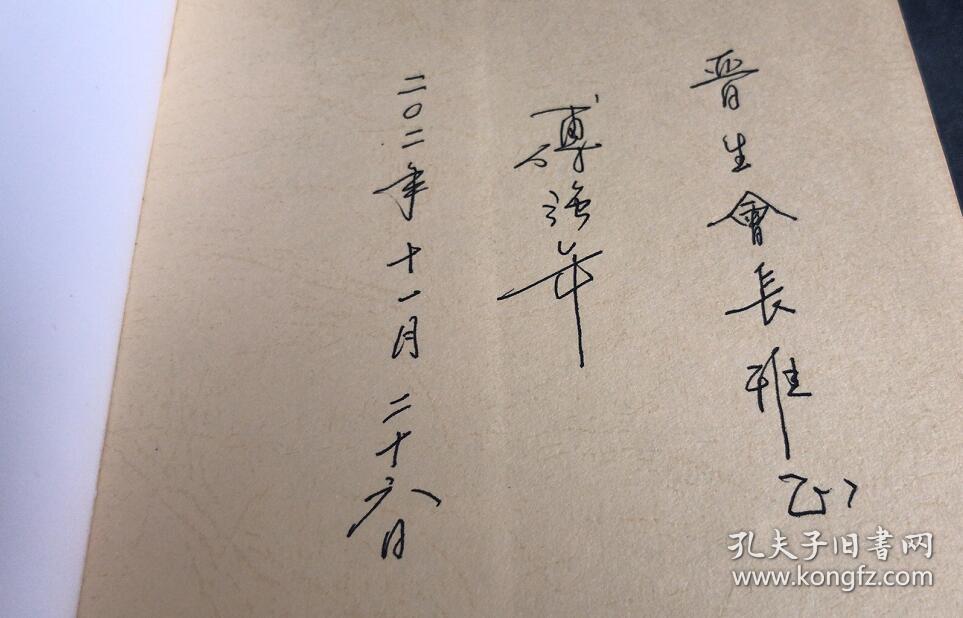 晋生會長雅
强年
二〇二年十一月二十六日
孔夫子旧書网
www.kongfz.com